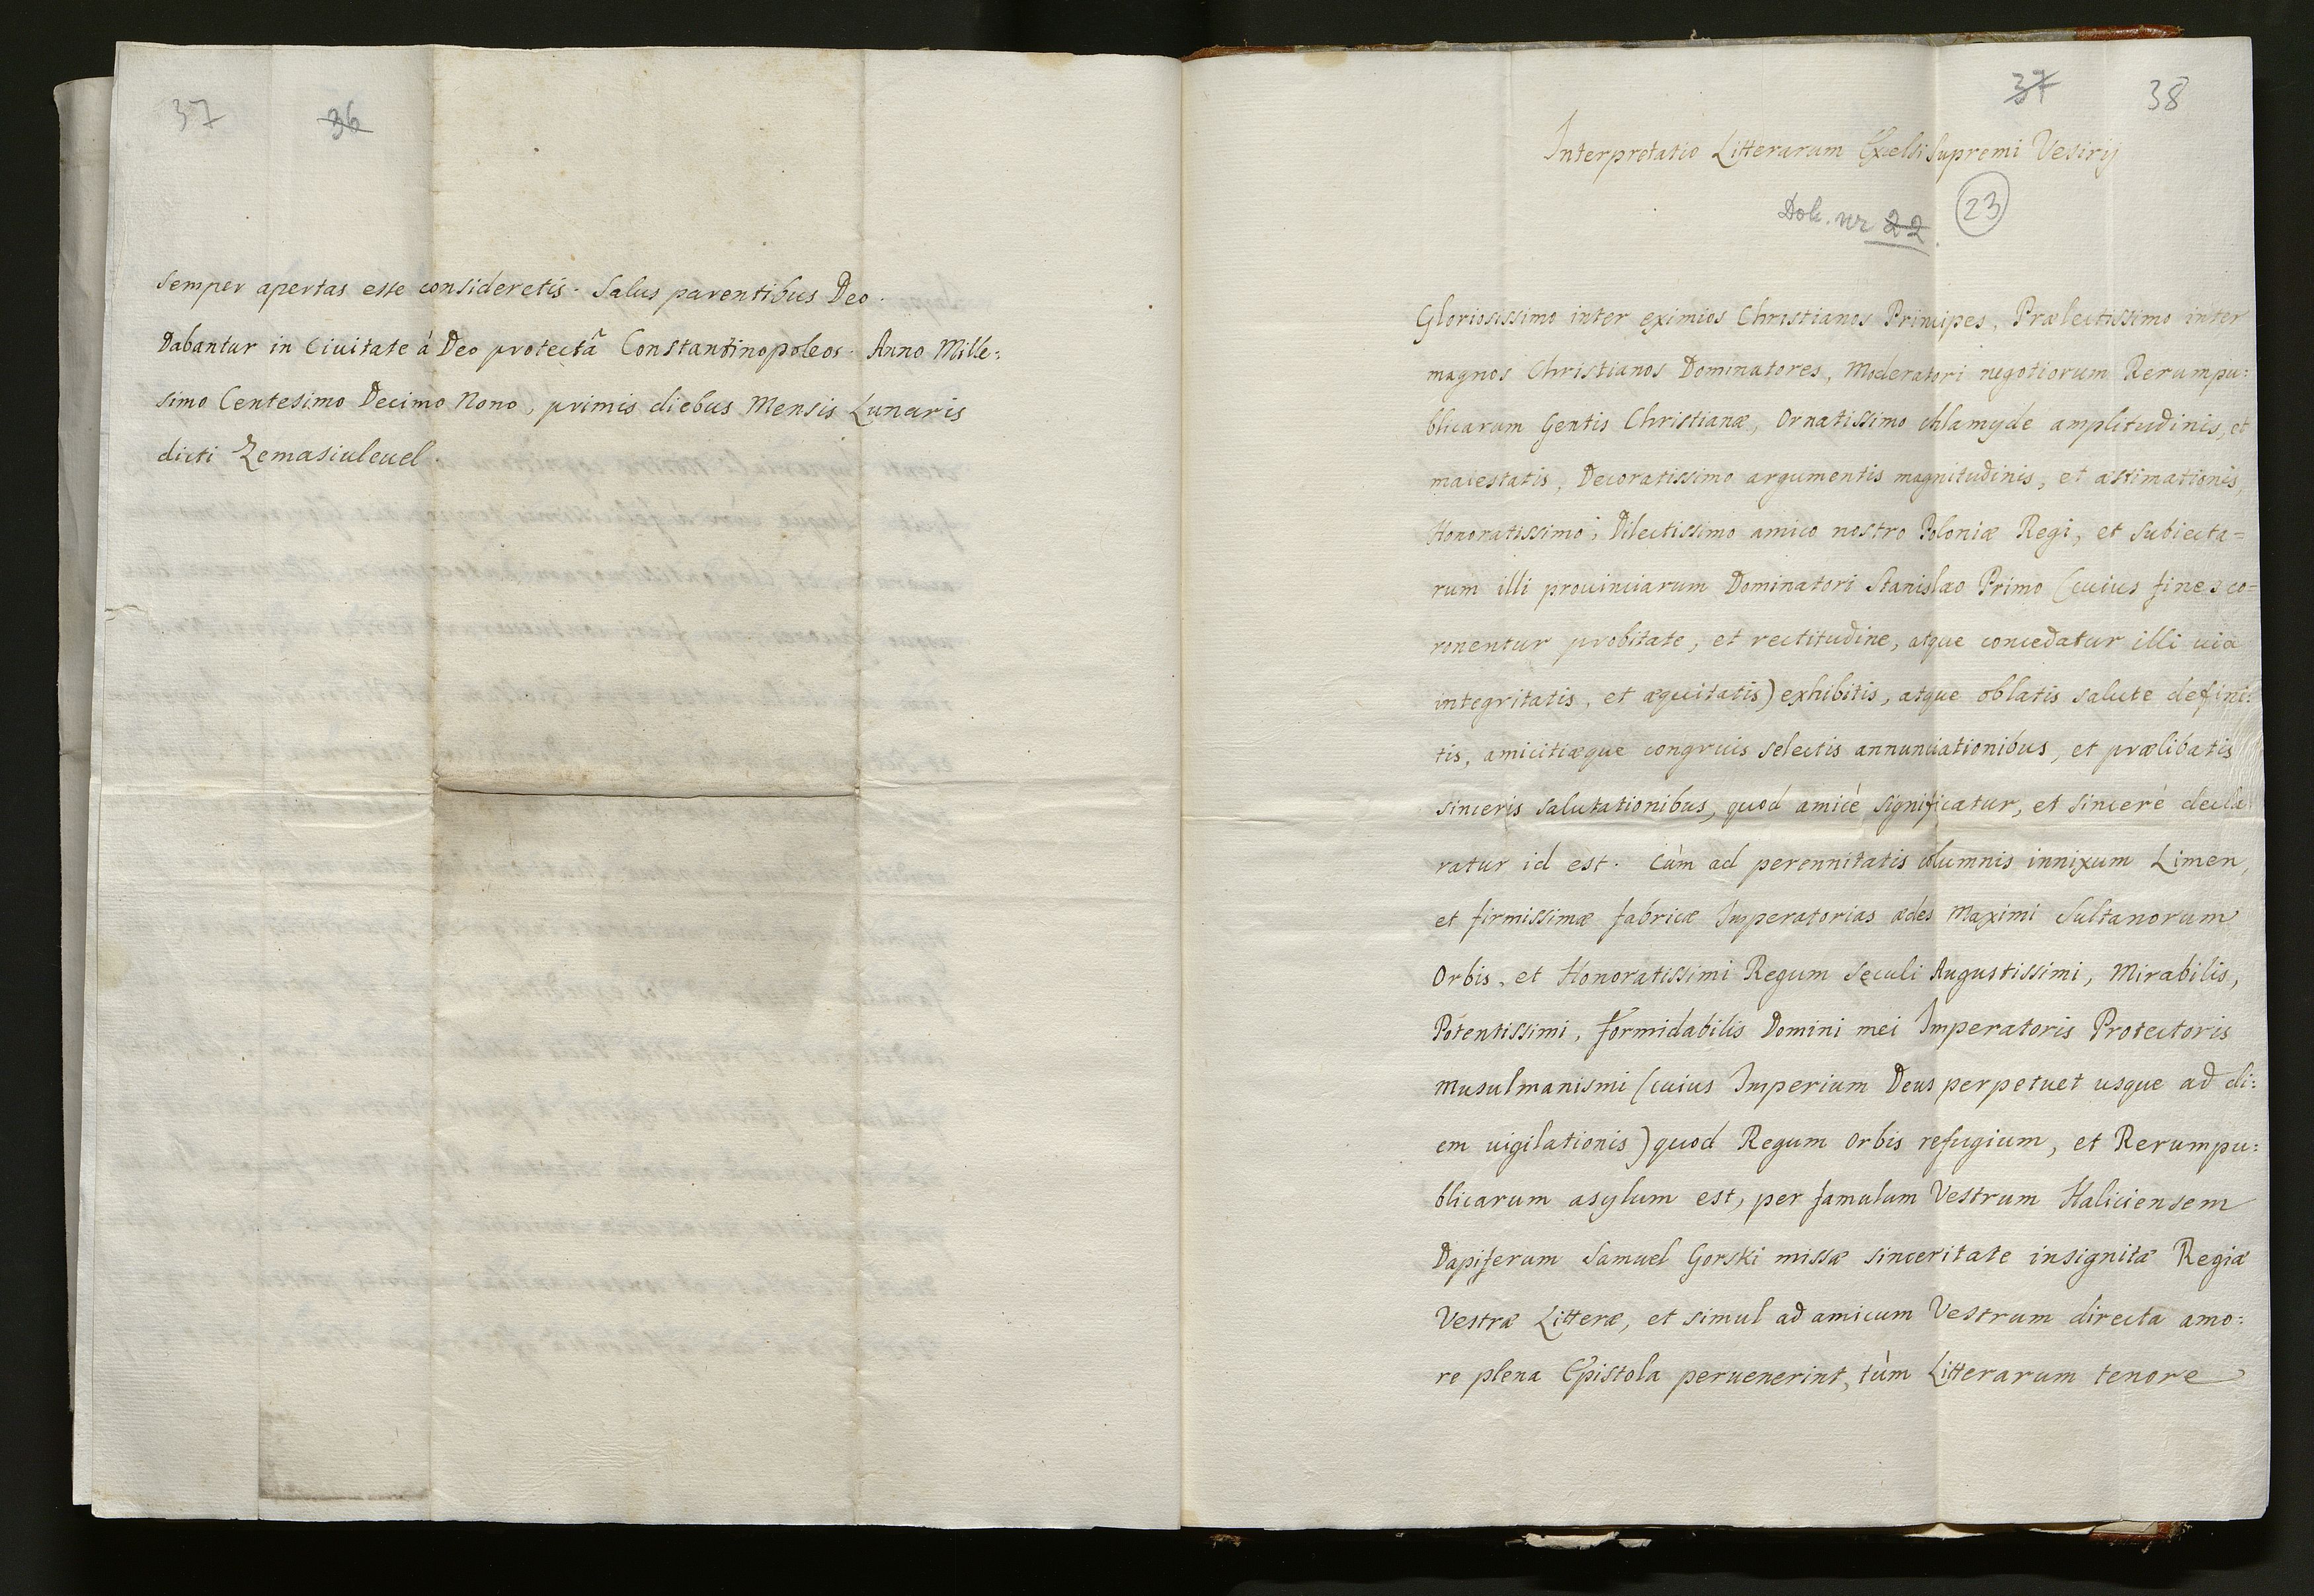 37 36
semper apertas esse consideretis. Salus parentibus Deo.
Dabantur in Ciuitate à Deo protectâ Constantinopoleos. Anno Mille:
simo Centesimo Decimo Nono, primis diebus Mensis Lunaris
dicti Zemasiuleuel.
37 38
Interpretatio Litterarum Excelsi Supremi Vesirij
Dok. nr 22. 23
Gloriosissimo inter eximios Christianos Principes, Prælectissimo inter
magnos Christianos Dominatores, Moderatori negotiorum Rerumpu:
blicarum Gentis Christianæ, Ornatissimo chlamyde amplitudinis, et
maiestatis, Decoratissimo argumentis magnitudinis, et æstimationis,
Honoratissimo, Dilectissimo amico nostro Poloniæ Regi, et Subiecta=
rum illi prouinciarum Dominatori Stanislao Primo (cuius fines co=
ronentur probitate, et rectitudine, atque concedatur illi uia
integritatis, et æquitatis) exhibitis, atque oblatis salute defini:
tis, amicitiæque congruis selectis annunciationibus, et prælibatis
sinceris salutationibus, quod amicè significatur, et sincerè decla
ratur id est. Cùm ad perennitatis columnis innixum Limen,
et firmissimæ fabricæ Imperatorias ædes Maximi Sultanorum
Orbis, et Honoratissimi Regum Seculi Augustissimi, Mirabilis,
Potentissimi, formidabilis Domini mei Imperatoris Protectoris
Musulmanismi (cuius Imperium Deus perpetuet usque ad di:
em uigilationis) quod Regum Orbis refugium, et Rerumpu:
blicarum asylum est, per famulum Vestrum Haliciensem
Dapiferum Samuel Gorski missæ sinceritate insignitæ Regiæ
Vestræ Litteræ, et simul ad amicum Vestrum directa amo:
re plena Epistola peruenerint, tùm Litterarum tenore